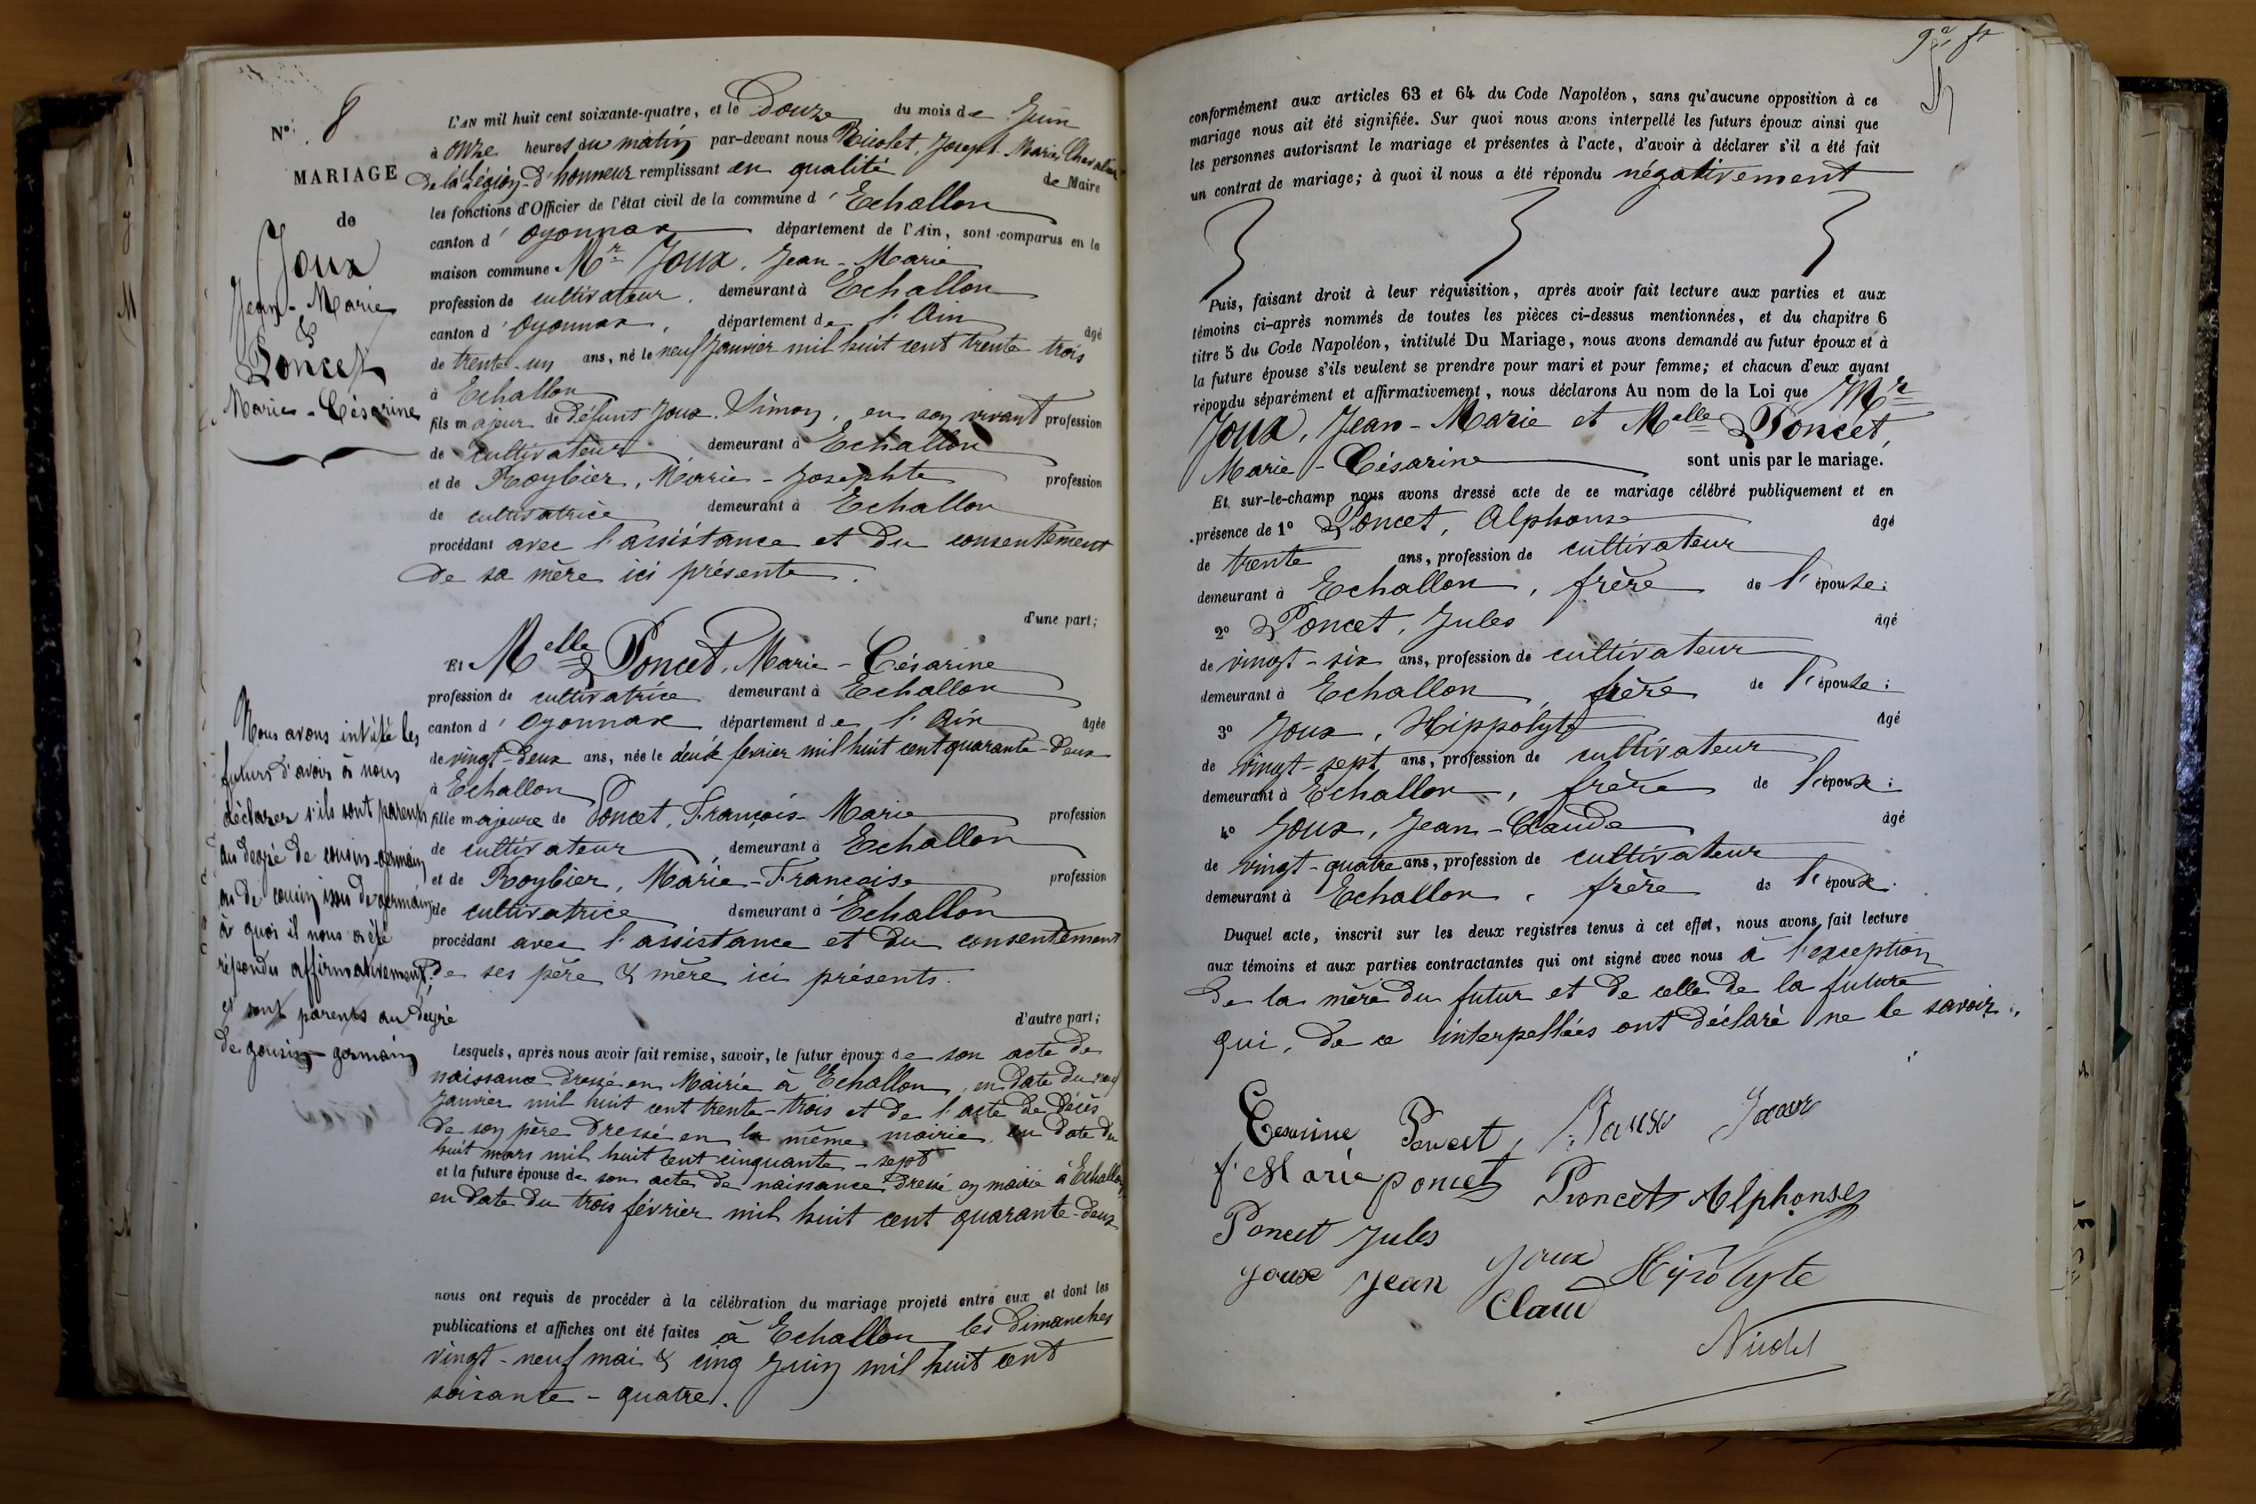 N° 8
MARIAGE
de
Joux
Jean-Marie
&
Poncet
Marie-Césarine
L'AN mil huit cent soixante-quatre, et le Douze du mois de Juin
à onze heures du matin par-devant nous Nicolet, Joseph Marie, Chevalier
de la Légion-d'honneur remplissant en qualité de Maire
les fonctions d'Officier de l'état civil de la commune d' Echallon
canton d' Oyonnax département de l'Ain, sont comparus en la
maison commune Mr Joux, Jean-Marie
profession de cultivateur, demeurant à Echallon
canton d' Oyonnax, département de l'Ain âgé
de trente-un ans, né le neuf Janvier mil huit cent trente trois
à Echallon
fils majeur de défunt Joux, Simon, en son vivant profession
de cultivateur demeurant à Echallon
et de Roybier, Marie-Josephte profession
de cultivatrice demeurant à Echallon
procédant avec l'assistance et du consentement
de sa mère ici présente.
d'une part;
Et Melle Poncet, Marie-Césarine
profession de cultivatrice demeurant à Echallon
canton d' Oyonnax département de l'Ain âgée
de vingt-deux ans, née le deux février mil huit cent quarante-deux
à Echallon
fille majeure de Poncet, François-Marie profession
de cultivateur demeurant à Echallon
et de Roybier, Marie-Francoise profession
de cultivatrice demeurant à Echallon
procédant avec l'assistance et du consentement
de ses père & mère ici présents.
d'autre part;
Nous avons invité les
futurs d'avoir à nous
déclarer s'ils sont parents
au degré de cousin-germain
ou de cousin issu de germain
à quoi il nous a été
répondu affirmativement,
et sont parents au degré
de cousin-germain
Lesquels, après nous avoir fait remise, savoir, le futur époux de son acte de
naissance dressé en Mairie à Echallon, en date du neuf
Janvier mil huit cent trente-trois et de l'acte de décès
de son père dressé en la même mairie, en date du
huit mars mil huit cent cinquante-sept
et la future épouse de son acte de naissance dressé en mairie à Echallon
en date du trois février mil huit cent quarante-deux
nous ont requis de procéder à la célébration du mariage projeté entre eux et dont les
publications et affiches ont été faites à Echallon les dimanches
vingt-neuf mai & cinq Juin mil huit cent
soixante-quatre.
conformément aux articles 63 et 64 du Code Napoléon, sans qu'aucune opposition à ce
mariage nous ait été signifiée. Sur quoi nous avons interpellé les futurs époux ainsi que
les personnes autorisant le mariage et présentes à l'acte, d'avoir à déclarer s'il a été fait
un contrat de mariage; à quoi il nous a été répondu négativement
Puis, faisant droit à leur réquisition, après avoir fait lecture aux parties et aux
témoins ci-après nommés de toutes les pièces ci-dessus mentionnées, et du chapitre 6
titre 5 du Code Napoléon, intitulé Du Mariage, nous avons demandé au futur époux et à
la future épouse s'ils veulent se prendre pour mari et pour femme; et chacun d'eux ayant
répondu séparément et affirmativement, nous déclarons Au nom de la Loi que Mr
Joux, Jean-Marie et Melle Poncet,
Marie-Césarine sont unis par le mariage.
Et sur-le-champ nous avons dressé acte de ce mariage célébré publiquement et en
présence de 1° Poncet, Alphonse âgé
de trente ans, profession de cultivateur
demeurant à Echallon, frère de l'épouse;
2° Poncet, Jules âgé
de vingt-six ans, profession de cultivateur
demeurant à Echallon, frère de l'épouse;
3° Joux, Hippolyte âgé
de vingt-sept ans, profession de cultivateur
demeurant à Echallon, frère de l'époux;
4° Joux, Jean-Claude âgé
de vingt-quatre ans, profession de cultivateur
demeurant à Echallon, frère de l'époux.
Duquel acte, inscrit sur les deux registres tenus à cet effet, nous avons fait lecture
aux témoins et aux parties contractantes qui ont signé avec nous à l'exception
de la mère du futur et de celle de la future
qui, de ce interpellées ont déclaré ne le savoir.
Cesarine Poncet
f. Marie poncet Poncet Alphonse
Poncet Jules
joux jean Claud joux Hypolyte
Nicolet